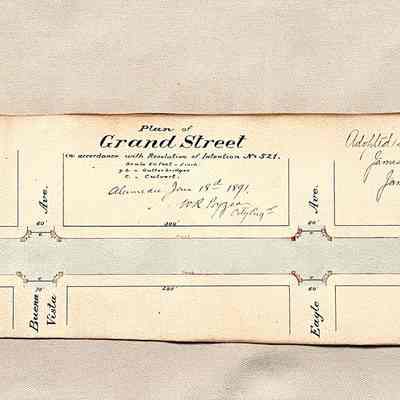 Plan of
Grand Street
in accordance with Resolution of Intention No 521.
Scale 50 feet = 1 inch.
g.b. = Gutterbridges
C. = Culvert.
Alameda Jan 18th 1891.
City Eng'r
Adopted
James
Jan
Ave.
Ave.
60'
300'
60'
Buena
Vista
70'
280'
60'
Eagle